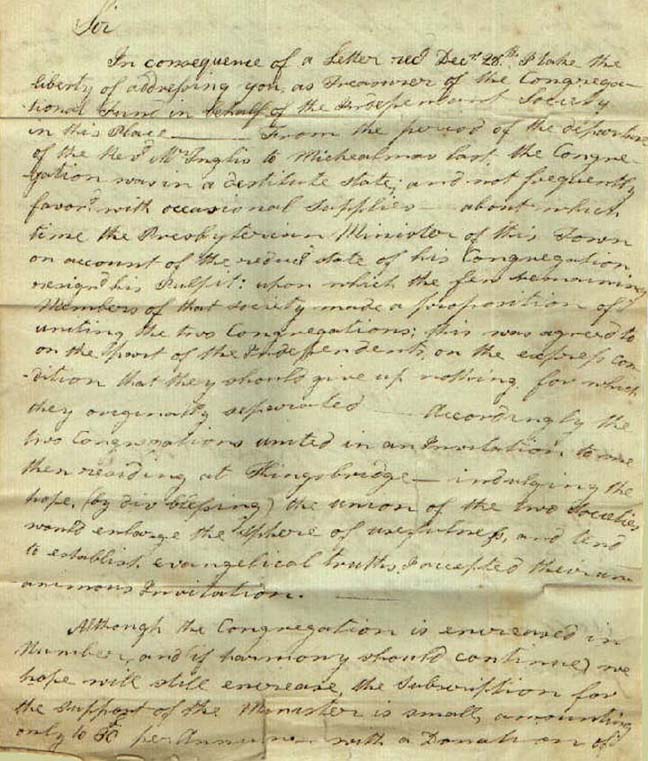 Sir
In consequence of a Letter recd Decr 28th I take the
liberty of addressing you, as Treasurer of the Congrega-
tional Fund in behalf of the Independant Society
in this Place — From the period of the departure
of the Revd Mr Inglis to Michealmas last, the Congre-
gation was in a destitute state; and not frequently
favord with occasional supplies — about which
time the Presbyterian Minister of this Town
on account of the reducd state of his Congregation
resignd his Pulpit: upon which the few remaining
Members of that society made a proposition of
uniting the two Congregations; this was agreed to
on the part of the Independents, on the express con-
-dition that they should give up nothing for which
they originally seperated — Accordingly the
two Congregations united in an Invitation to me
then residing at Kingsbridge — indulging the
hope, (by div blessing) the union of the two Societies
would enlarge the sphere of usefulness, and tend
to establish evangelical truths, I accepted their un-
animous Invitation. —
Although the Congregation is encreased in
Number, and (if harmony should continue) we
hope will still encrease, the Subscription for
the support of the Minister is small, amounting
only to per Annum — with a Donation of